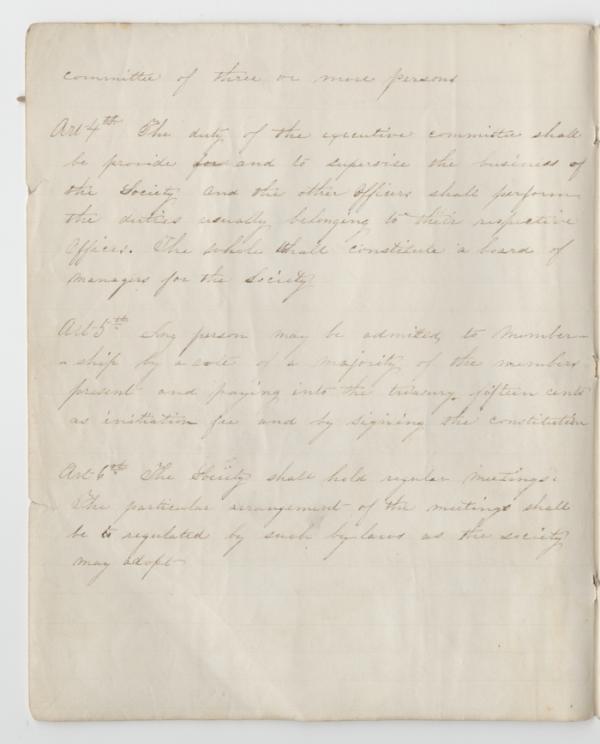 committee of three or more persons
Art 4th The duty of the executive committee shall
be provide for and to supervise the business of
the Society and the other Officers shall perform
the duties usually belonging to their respective
Offices. The whole shall constitute a board of
managers for the Society
Art 5th Any person may be admited to member-
-ship by a vote of a majority of the members
present and paying into the treasury fifteen cents
as initiation fee and by signing the constitution
Art 6th The Society shall hold regular meetings.
The particular arrangement of the meetings shall
be regulated by such by laws as the society
may adopt